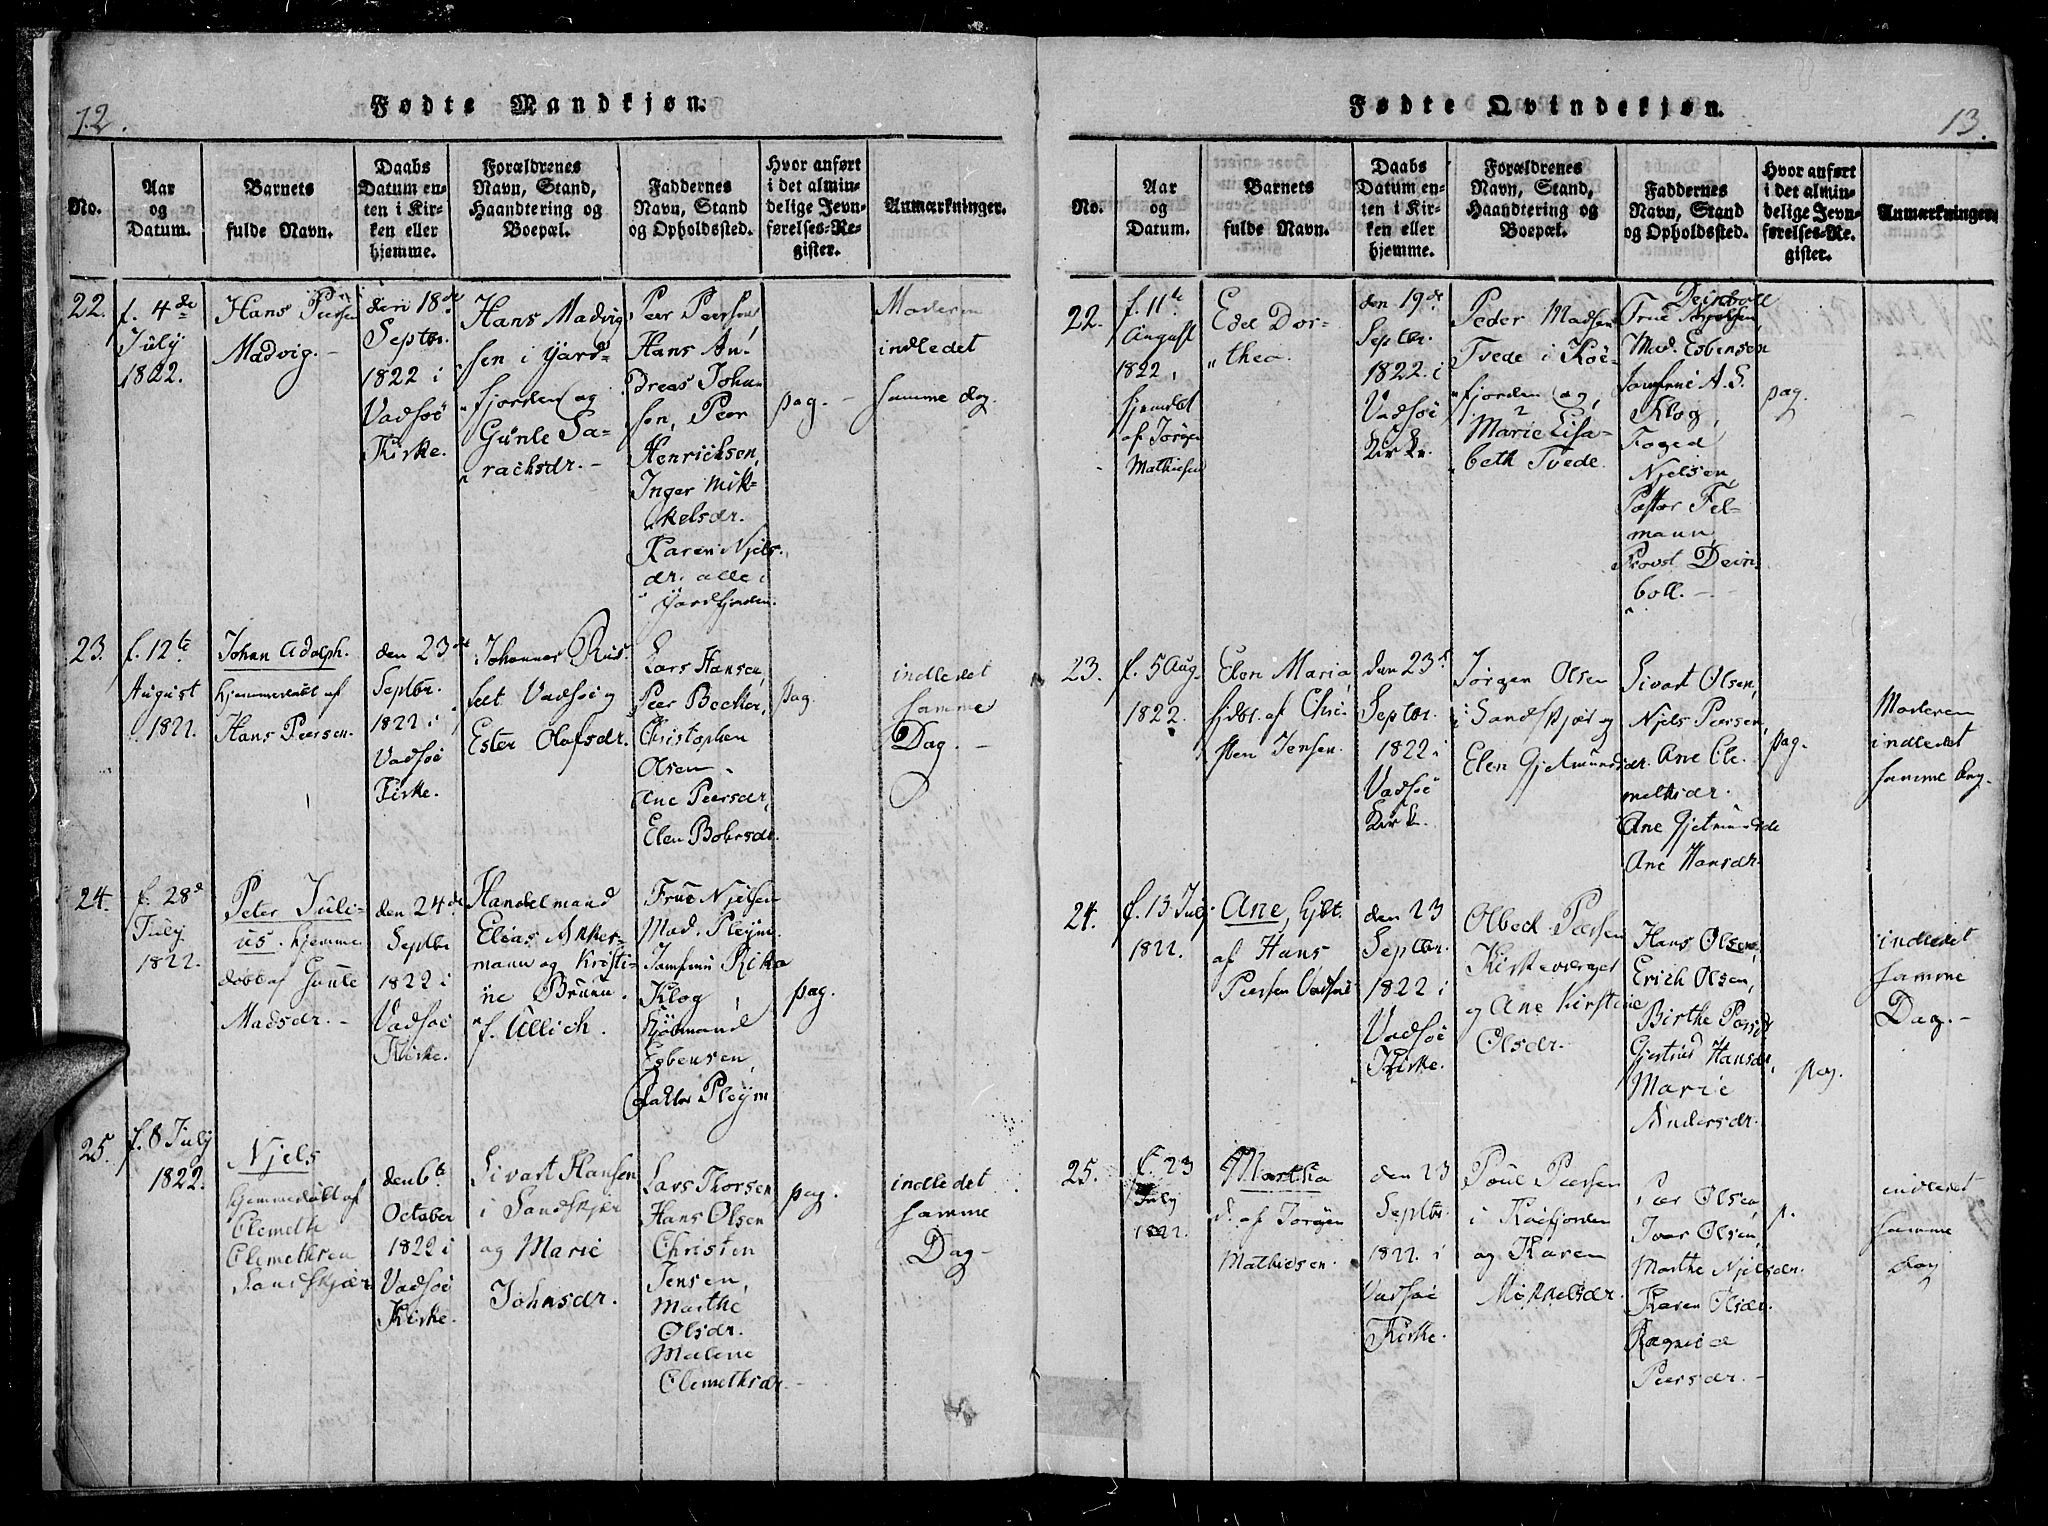 12.
Fødte Mandkjøn.
No.
Aar
og
Datum.
Barnets
fulde Navn.
Daabs
Datum en-
ten i Kir-
ken eller
hjemme.
Forældrenes
Navn, Stand,
Haandtering og
Boepæl.
Faddernes
Navn, Stand
og Opholdssted.
Hvor anført
i det almin-
delige Jevn-
førelses-Re-
gister.
Anmærkninger.
22.
f. 4de
July
1822.
Hans Peersen
Madvig.-
den 18de
Septbr.
1822 i
Vadsøe
Kirke.
Hans Madvig-
sen i Jard-
fjorden og
Gunle Sa-
rachsdr.-
Peer Peersen
Hans An-
dreas Johan-
sen, Peer
Henrichsen,
Inger Mik-
kelsdr.
Karen Njels-
dr. alle i
Jardfjorden.
pag. -
Moderen
indledet
samme dag.
23.
f. 12te
August
1822.
Johan Adolph.
hjemmedøbt af
Hans Peersen.
den 23de
Septbr.
1822 i
Vadsøe
Kirke.
Johannes Rus-
felt Vadsøe og
Ester Olofsdr.
Lars Hansen,
Peer Becker,
Christophen
Olsen -
Ane Peersdr,
Elen Bobersdr.
pag.
indledet
samme
Dag. -
24.
f. 28de
July
1822.
Peter Juli-
us. hjemme
døbt af Gunle
Madsdr. -
den 24de
Septbr
1822 i
Vadsøe
Kirke.
Handelmand
Elias Akker-
mann og Kristi-
ne Bruun.
f. Ullich.
Frue Njelsen
Mad. Pleym.
Jomfrue Rika
Klog,
Kjøbmand
Esbensen,
Faktor Pleym
pag.
25.
f. 8 July
1822.
Njels
hjemmedøbt af
Clemethe
Clemethsen
Sandskjær
den 6te
October
1822 i
Vadsøe
Kirke.
Sivart Hansen
i Sandskjær
og Marie
Johnsdr.
Lars Thorsen
Hans Olsen
Christen
Jensen,
Marthe
Olsdr.
Malene
Clemethsdr.
pag.
indledet
samme
Dag-
13.
Fødte Qvindekjøn.
No.
Aar
og
Datum.
Barnets
fulde Navn.
Daabs
Datum en-
ten i Kir-
ken eller
hjemme.
Forældrenes
Navn, Stand,
Haandtering og
Boepæl.
Faddernes
Navn, Stand
og Opholdssted.
Hvor anført
i det almin-
delige Jevn-
førelses-Re-
gister.
Anmærkninger.
22.
f. 11te
August
1822,
hjemdbt
af Jørgen
Mathiesen
Edel Dor-
thea.
den 19de
Septbr.
1822. i
Vadsøe
Kirke.
Peder Madsen
Tvede i Køe-
fjorden og,
Marie Elisa-
beth Tvede.
Deinboll
Frue Njelsen,
Mad. Esbensen
Jomfrue A. S.
Klog,
Foged
Njelsen,
Pastor Fel-
mann,
Provst Dein-
boll.-
pag.
23.
f. 5 Aug.
1822.
Elen Maria,
hjdbt. af Chri-
sten Jensen.
den 23de
Septbr.
1822 i
Vadsøe
Kirke.
Jørgen Olsen
i Sandskjær og
Elen Gjetmundsdr.
Sivart Olsen,
Njels Peersen,
Ane Cle-
methsdr.
Ane Gjetmundsdr
Ane Hansdr.
pag.
Moderen
indledet
samme Dag.
24.
f. 13 July
1822.
Ane, hjbt.
af Hans
Peersen Vadsøe
den 23
Septbr.
1822 i
Vadsøe
Kirke.
Olbeck Peersen
Kirkeværget
og Ane Kirstine
Olsdr.
Hans Olsen,
Erich Olsen,
Birthe Peersdr
Gjertrud Hansdr,
Marie
Andersdr.
pag.
indledet
samme
Dag.-
25.
f. 23
July
1822.
Martha
d. af Jørgen
Mathiesen.
den 23
Septbr.
1822. i
Vadsøe
Kirke.
Poul Peersen
i Køefjorden
og Karen
Mikkelsdr.
Peer Olsen,
Iver Olsen,
Marthe Njelsdr.
Karen Olsdr.
Ragnild
Peersdr. -
p.
indledet
samme
dag